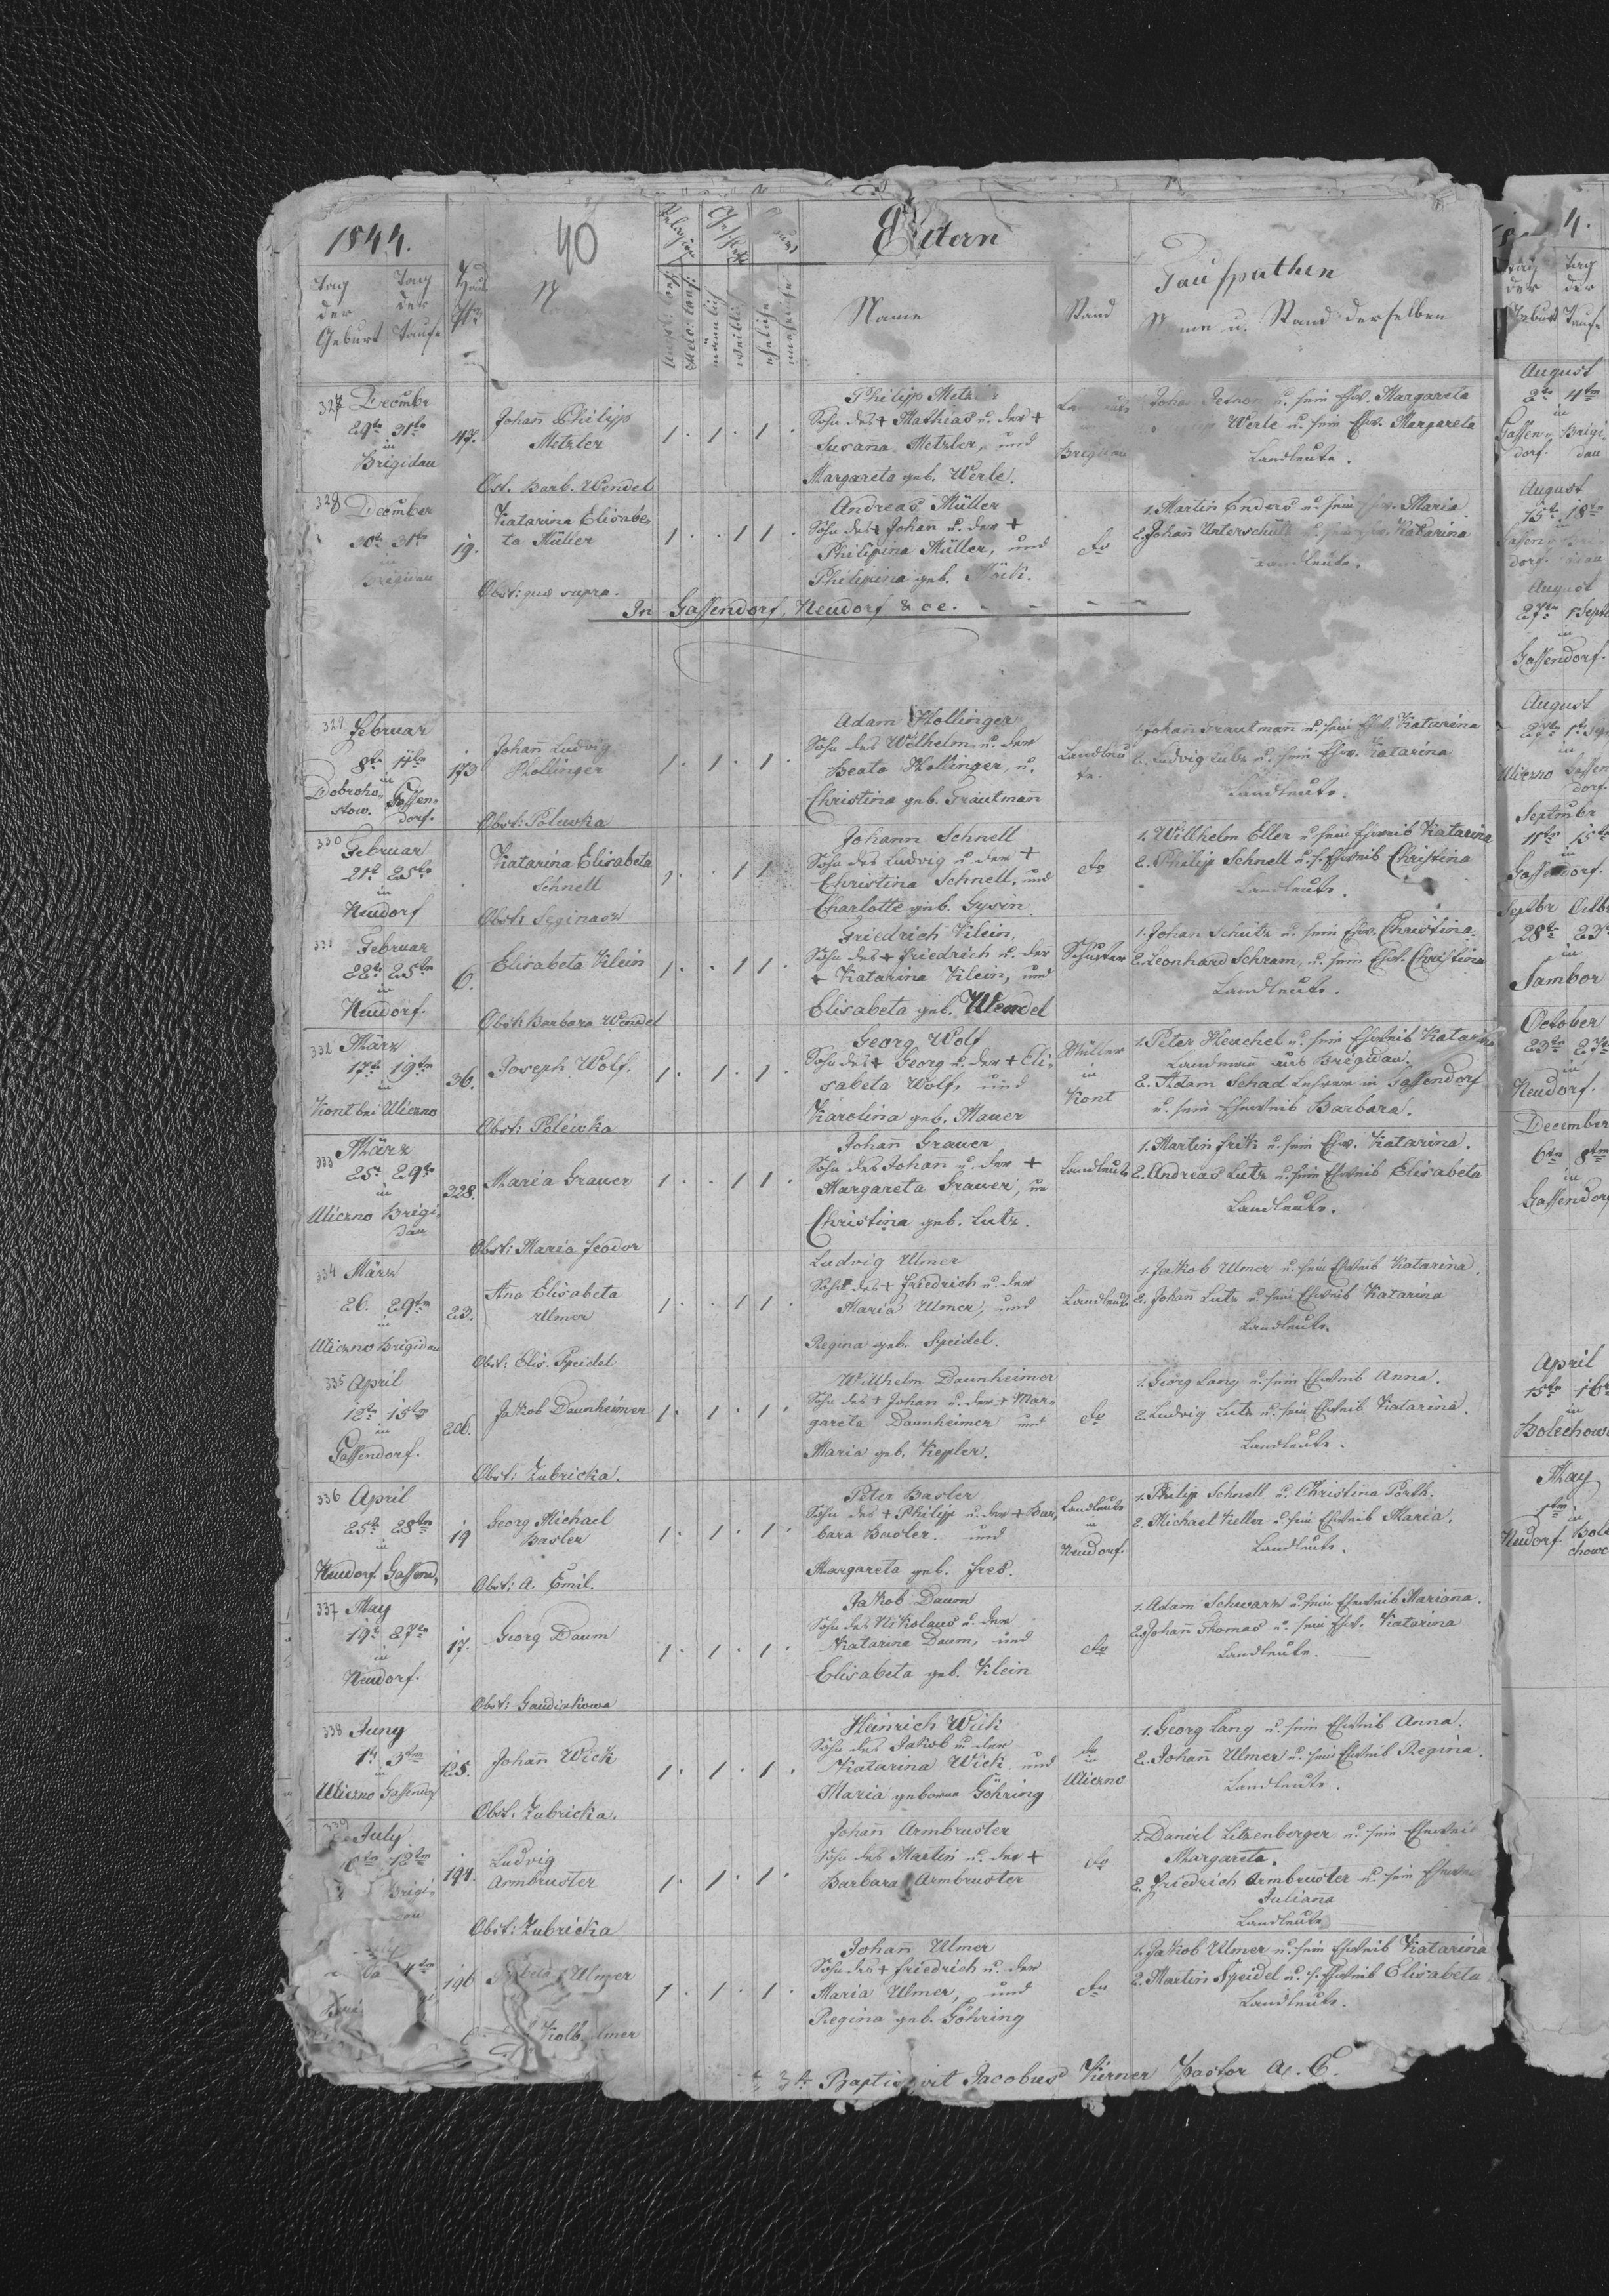 1844.
40
Eltern
Taufpathen
Tag der Geburt
Tag der Taufe
Haus
Nr
Religion
männlich
weiblich
eheliche
uneheliche
Name
Stand
Stand derselben
327 Decembr
29te 31te
in
Brigidau
47.
Johañ Philipp
Metzler
Obst. Barb. Wendel
1. 1. 1.
Philipp
Sohn des + Mathias u. der +
Susaña Metzler, und
Margareta geb. Werle.
u. sein Ehw. Margareta
Werle u. sein Ehw. Margareta
Landleute.
328 December
30te 31te
in
Brigidau
19.
Katarina Elisabe-
ta Müller
Obst: quæ supra.
1. . 1 1 .
Andreas Müller
Sohn des + Johan u. der +
Philipina Müller, und
Philipina geb.
do
1. Martin Enders u. sein Ehw. Maria
2. Johañ Katarina
Landleute.
In Gassendorf, Neudorf & ce.
329 Februar
8te 11te
in
Dobroho- Gassen-
stow. dorf.
173
Johañ Ludvig
Hollinger
Obst: Polewka
1. 1. 1.
Adam Hollinger
Sohn des Wilhelm u. der
Beata Hollinger, u.
Christina geb. Trautmañ
Landleu-
te.
1. Johañ Trautmañ u. sein Ehw. Katarina
2. Ludvig Lutz u. sein Ehw. Katarina
Landleute.
330 Februar
21te 25te
in
Neudorf
Katarina Elisabeta
Schnell
Obst:
1. . 1 1
Johann Schnell
Sohn des Ludvig u. der +
Christina Schnell, und
Charlotte geb. Gysin
do
1. Willhelm Eller u. sein Eheweib Katarina
2. Philip Schnell u. s. Eheweib Christina
Landleute.
331 Februar
22te 25ten
in
Neudorf.
6.
Elisabeta Klein
Obst: Barbara Wendel
1. . 1 1 .
Friedrich Klein,
Sohn des + Friedrich u. der
+ Katarina Klein, und
Elisabeta geb. Wendel
Schuster
1. Johan Schütz u. sein Ehw. Christina.
2. Leonhard Schram, u. sein Ehw. Christina
Landleute.
332 März
17te 19ten
in
Kont bei Uliczno
36.
Joseph Wolf.
Obst: Polewka
1. 1. 1.
Georg Wolf
Sohn des + Georg u. der + Eli-
sabeta Wolf, und
Karolina geb. Mauer
Müller
in
Kont
1. Peter Heuchel u. sein Eheweib Katarina
Landmañ aus Brigidau.
2. Adam Schad Lehrer in Gassendorf
u. sein Eheweib Barbara.
333 März
25te 29te
in
Uliczno Brigi-
dau
228.
Maria Grauer
Obst: Maria Feodor
1. . 1 1 .
Johañ Grauer
Sohn des Johañ u. der +
Margareta Grauer, u
Christina geb. Lutz.
Landleute
1. Martin Fritz u. sein Ehw. Katarina.
2. Andreas Lutz u. sein Eheweib Elisabeta
Landleute.
334 März
26. 29ten
in
Uliczno Brigidau
23.
Ana Elisabeta
Ulmer
Obst: Elis. Speidel
1. . 1 1 .
Ludvig Ulmer
Sohn des + Friedrich u. der
Maria Ulmer, und
Regina geb. Speidel.
Landleute
1. Jakob Ulmer u. sein Eheweib Katarina.
2. Johañ Lutz u. sein Eheweib Katarina
Landleute.
335 April
12te 15ten
in
Gassendorf.
Jakob Daunheimer
Obst: Zubricka.
1. 1. 1.
Willhelm Daunheimer
Sohn des + Johan u. der + Mar-
gareta Daunheimer und
Maria geb. Kepler.
do
1. Georg Lang u. sein Eheweib Anna.
2. Ludvig Lutz u. sein Eheweib Katarina.
Landleute.
336 April
25te 28ten
in
Neudorf Gassend.
19
Georg Michael
Basler
Obst: A. Emil.
1. 1. 1.
Peter Basler
Sohn des + Philipp u. der + Bar-
bara Basler. und
Margareta geb. Fres.
Landleute
in
Neudorf.
1. Philipp Schnell u. Christina Porth.
2. Michael Keller u. sein Eheweib Maria.
Landleute.
337 May
19te 27te
in
Neudorf.
17.
Georg Daum
Obst: Gaudiakowa
1. 1. 1.
Jakob Daum
Sohn des Nikolaus u. der
Katarina Daum, und
Elisabeta geb. Klein
do
1. Adam Schwarz u. sein Eheweib Mariaña.
2. Johañ Thomas u. sein Ehw. Katarina
Landleute.
338 Juny
1te 3ten
in
Uliczno Gassendorf
125.
Johañ Wick
Obst. Zubricka.
1. 1. 1.
Heinrich Wick
Sohn des Jakob u. der
Katarina Wick. und
Maria geborne Göhring
do
in
Uliczno
1. Georg Lang u. sein Eheweib Anna.
2. Johañ Ulmer u. sein Eheweib Regina.
Landleute.
339
July
12ten
Brigi-
dau
194.
Ludvig
Armbruster
Obst: Zubricka
1. 1. 1.
Johañ Armbruster
Sohn des Martin u. der +
Barbara Armbruster
do
1. Daniel Litzenberger u. sein Eheweib
Margareta.
2. Friedrich Armbruster u. sein Eheweib
Juliaña
Landleute
196
Ulmer
1. 1. 1.
Johañ Ulmer
Sohn des + Friedrich u. der
Maria Ulmer, und
Regina geb. Göhring
do
1. Jakob Ulmer u. sein Eheweib Katarina
2. Martin Speidel u. s. Eheweib Elisabeta
Landleute.
Baptisavit Jacobus Kürner Pastor A. C.
4.
Tag der Geburt
Tag der Taufe
August
2te 4ten
in
Gassen- Brigi-
dorf. dau
August
15te 18te
August
27te 1 Septe
in
Gassendorf.
August
in
Uliczno Gassen
dorf.
Septembr
11te 15te
in
Gassendorf.
Septbr Octbr
28te 23
in
Sambor
October
23te 27
in
Neudorf.
December
6ten 8ten
in
Gassendorf
April
15ten 16
in
Bolechow
May
in
Neudorf Bole
chow